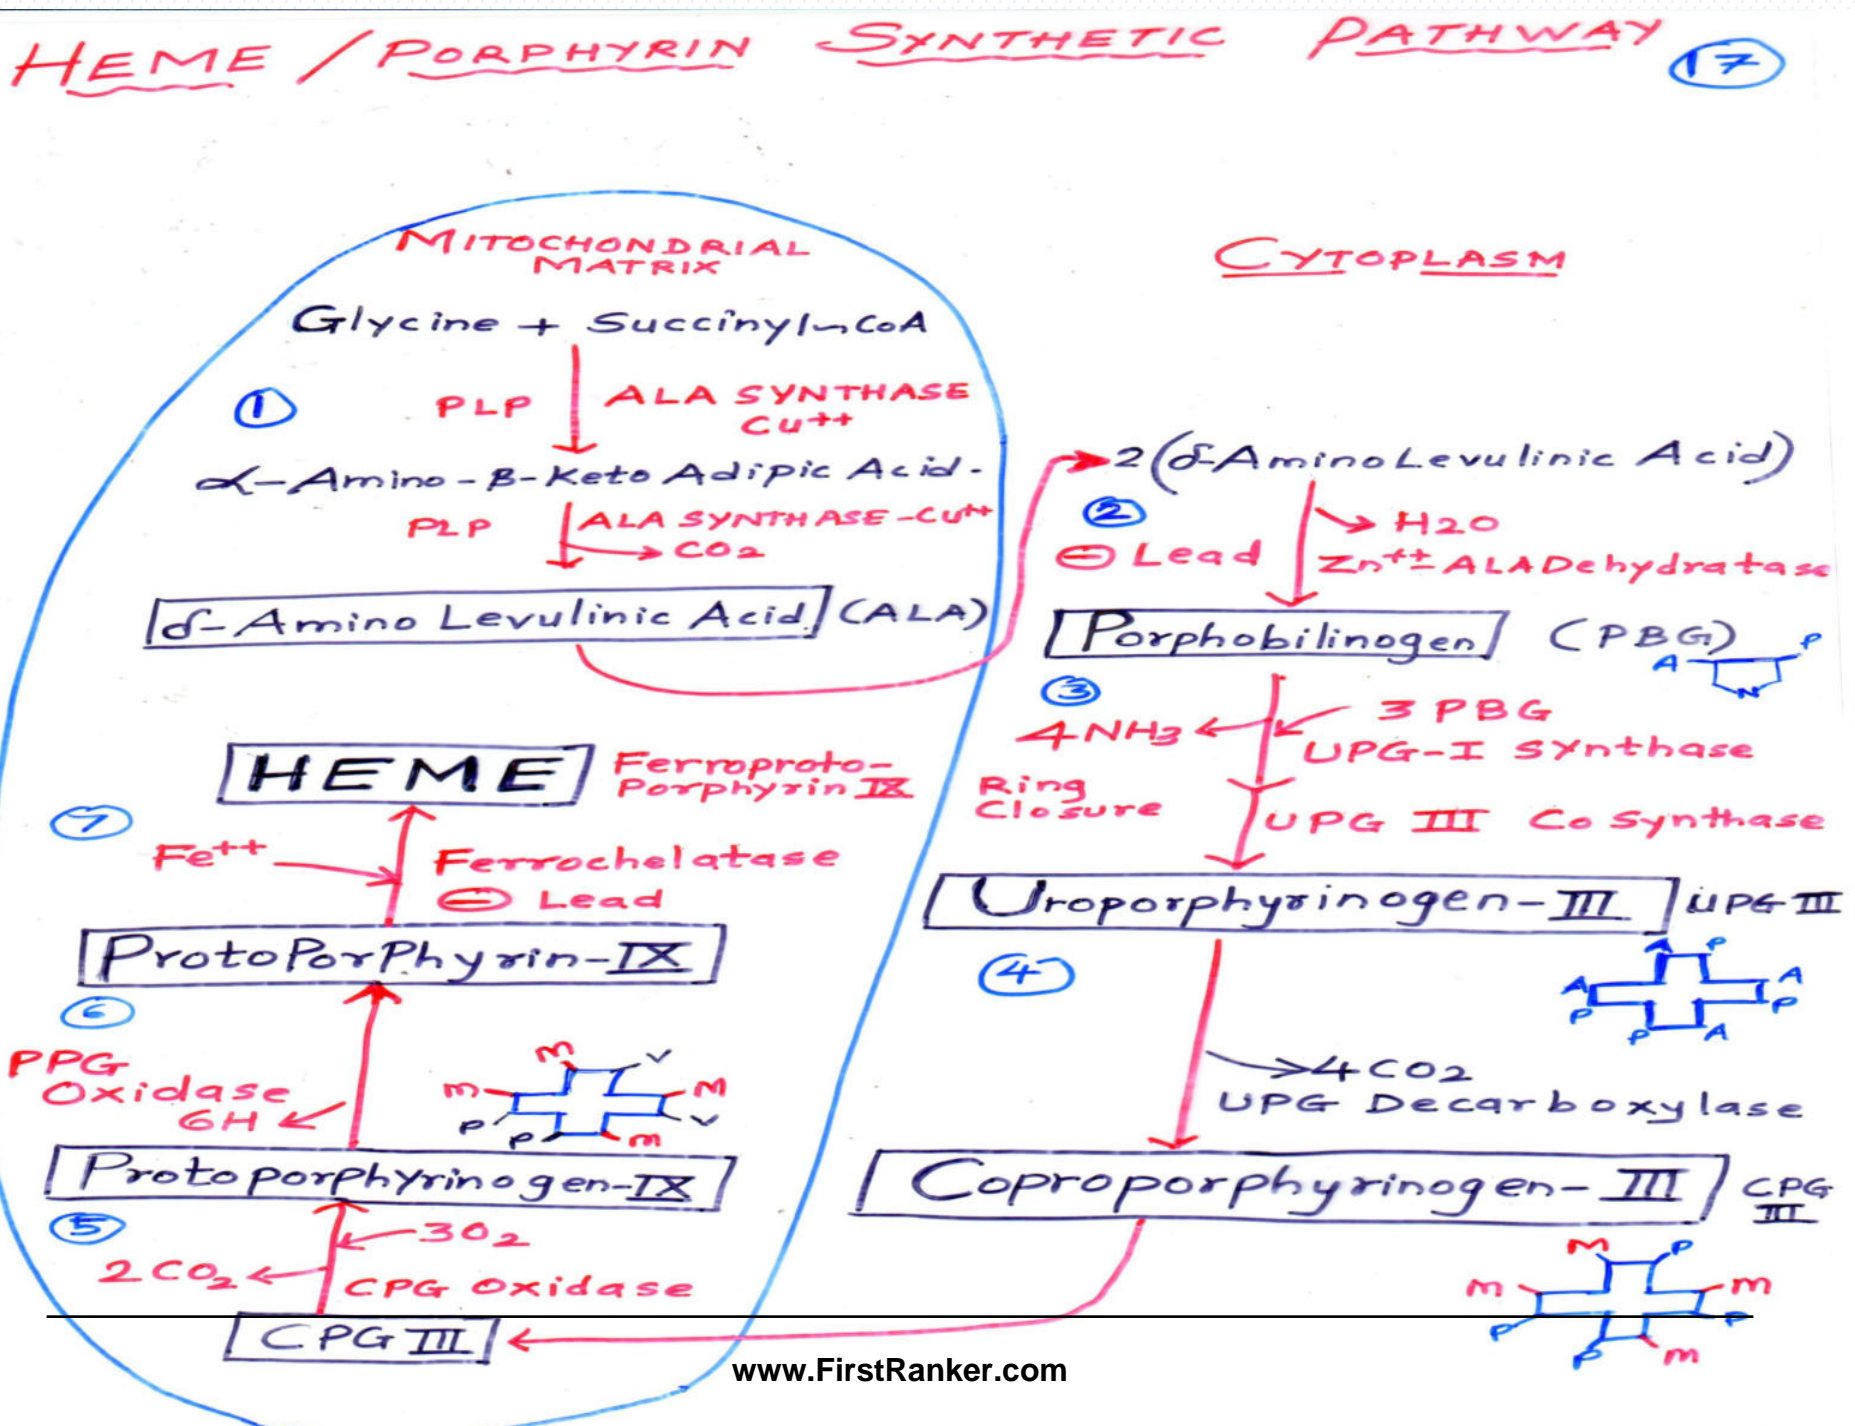 HEME / PORPHYRIN SYNTHETIC PATHWAY
17
MITOCHONDRIAL
MATRIX
Glycine + Succinyl~CoA
1
PLP
ALA SYNTHASE
Cu++
α-Amino-β-Keto Adipic Acid.
PLP
ALA SYNTHASE-Cu++
CO2
δ-Amino Levulinic Acid (ALA)
CYTOPLASM
2(δ-AminoLevulinic Acid)
2
H2O
⊖ Lead
Zn++-ALADehydratase
Porphobilinogen (PBG)
A P
N
3
4NH3
3 PBG
UPG-I Synthase
Ring
Closure
UPG III CoSynthase
Uroporphyrinogen-III UPG III
A P
A A
P P
P A
4
4CO2
UPG Decarboxylase
Coproporphyrinogen-III CPG
III
M P
m m
P P
P m
CPG III
5
3O2
2CO2
CPG Oxidase
Protoporphyrinogen-IX
m V
m M
P V
P m
6
PPG
Oxidase
6H
ProtoPorPhyrin-IX
7
Fe++
Ferrochelatase
⊖ Lead
HEME Ferroproto-
Porphyrin IX
www.FirstRanker.com